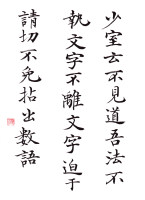 少室云不見道吾法不
執文字不離文字迫于
請切不免拈出數語